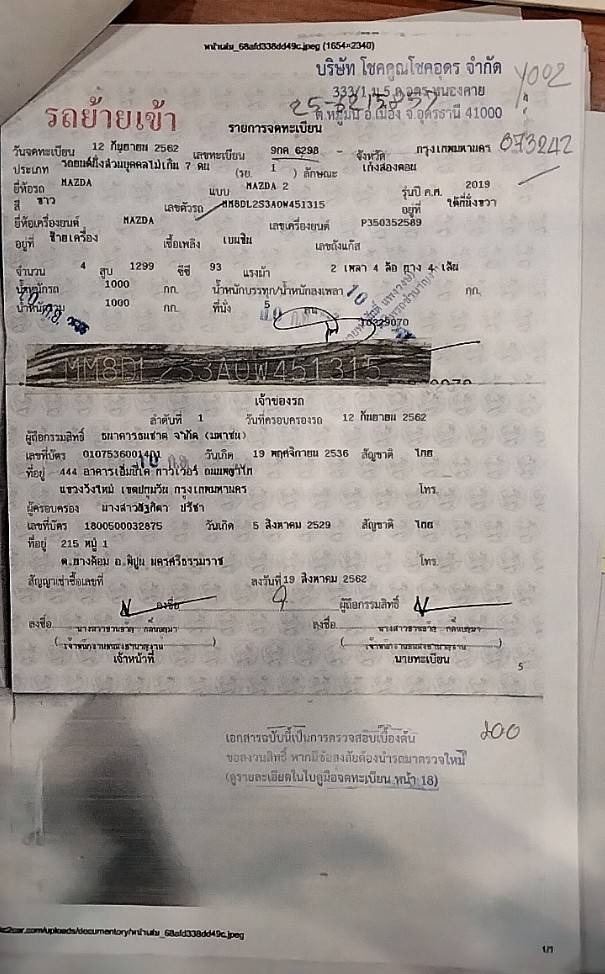 หน้าเล่ม_68afd338dd49c.jpeg (1654×2340)
บริษัท โชคคูณโชคอุดร จำกัด
333/1 ม.5 ถ.อุดร-หนองคาย
ต.หมูม่น อ.เมือง จ.อุดรธานี 41000
Y002
073242
รถย้ายเข้า
รายการจดทะเบียน
วันจดทะเบียน 12 กันยายน 2562 เลขทะเบียน 9กค 6298 - จังหวัด กรุงเทพมหานคร
ประเภท รถยนต์นั่งส่วนบุคคลไม่เกิน 7 คน (รย. 1 ) ลักษณะ เก๋งสองตอน
ยี่ห้อรถ MAZDA แบบ MAZDA 2 รุ่นปี ค.ศ. 2019
สี ขาว เลขตัวรถ MM8DL2S3A0W451315 อยู่ที่ ใต้ที่นั่งขวา
ยี่ห้อเครื่องยนต์ MAZDA เลขเครื่องยนต์ P350352589
อยู่ที่ ซ้ายเครื่อง เชื้อเพลิง เบนซิน เลขถังแก๊ส
จำนวน 4 สูบ 1299 ซีซี 93 แรงม้า 2 เพลา 4 ล้อ ยาง 4 เส้น
น้ำหนักรถ 1000 กก. น้ำหนักบรรทุก/น้ำหนักลงเพลา กก.
น้ำหนักรวม 1000 กก. ที่นั่ง 5
10229070
MM8DL2S3A0W451315
เจ้าของรถ
ลำดับที่ 1 วันที่ครอบครองรถ 12 กันยายน 2562
ผู้ถือกรรมสิทธิ์ ธนาคารธนชาต จำกัด (มหาชน)
เลขที่บัตร 0107536001401 วันเกิด 19 พฤศจิกายน 2536 สัญชาติ ไทย
ที่อยู่ 444 อาคารเอ็มบีเค ทาวเวอร์ ถนนพญาไท
แขวงวังใหม่ เขตปทุมวัน กรุงเทพมหานคร โทร.
ผู้ครอบครอง นางสาวฐิติตา ปรีชา
เลขที่บัตร 1800500032875 วันเกิด 5 สิงหาคม 2529 สัญชาติ ไทย
ที่อยู่ 215 หมู่ 1
ต.ยางค้อม อ.พิปูน นครศรีธรรมราช โทร.
สัญญาเช่าซื้อเลขที่ ลงวันที่ 19 สิงหาคม 2562
ลงชื่อ ผู้ถือกรรมสิทธิ์
ลงชื่อ ลงชื่อ
เจ้าหน้าที่ นายทะเบียน
5
เอกสารฉบับนี้เป็นการตรวจสอบเบื้องต้น
ขอสงวนสิทธิ์ หากมีข้อสงสัยต้องนำรถมาตรวจใหม่
(ดูรายละเอียดในใบคู่มือจดทะเบียน หน้า 18)
200
2car.com/uploads/documentory/หน้าเล่ม_68afd338dd49c.jpeg
1/1